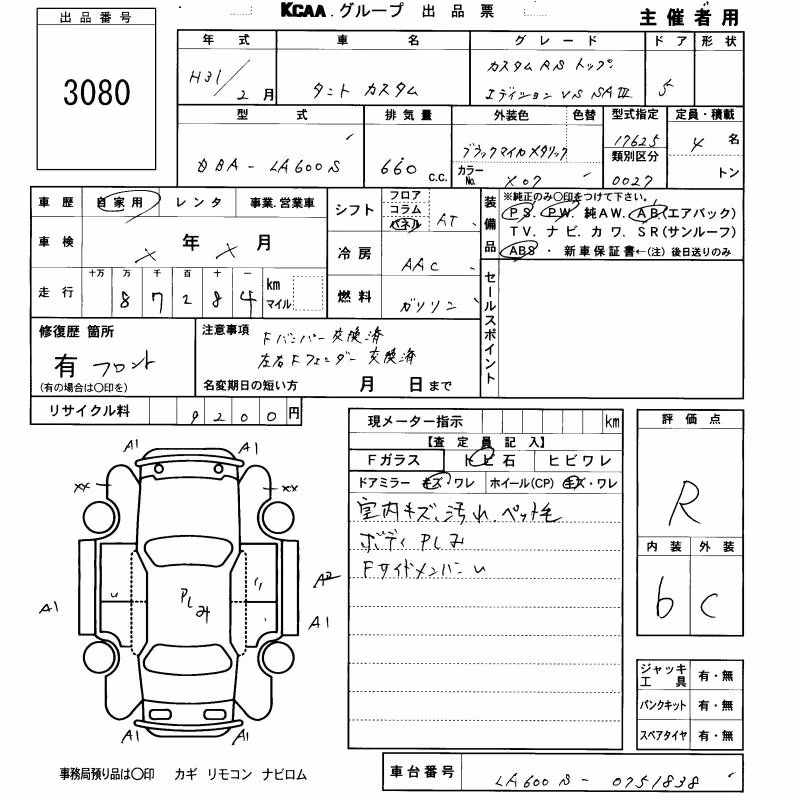 KCAA.グループ 出品票
主催者用
出品番号
3080
年式 車名 グレード ドア 形状
H31/2月 タント カスタム カスタムRS トップ 5
エディション VS SAⅢ
型式 排気量 外装色 色替 型式指定 定員・積載
DBA-LA600S 660 c.c. ブラックマイカメタリック 17625 4 名
カラーNo. X07 類別区分 0027 トン
車歴 自家用 レンタ 事業.営業車
車検 × 年 × 月
走行 十万 万 千 百 十 一 km マイル
8 7 2 8 4
シフト フロア コラム パネル AT
冷房 AAC
燃料 ガソリン
装備品
※純正のみ〇印をつけて下さい。
PS. PW. 純AW. AB(エアバック)
TV. ナビ. カワ. SR(サンルーフ)
ABS・新車保証書←(注)後日送りのみ
セールスポイント
修復歴 箇所
有 フロント
(有の場合は〇印を)
注意事項 Fバンパー交換済
左右Fフェンダー交換済
名変期日の短い方 月 日まで
リサイクル料 9200円
現メーター指示 km
【査定員記入】
Fガラス トビ石 ヒビワレ
ドアミラー キズ・ワレ ホイール(CP) キズ・ワレ
室内キズ、汚れ.ペット毛
ボディPLみ
FサイドメンバーU
評価点
R
内装 外装
b C
A1 A1
×× ××
U PLみ A2
A1 A1
A1 A1
ジャッキ工具 有・無
パンクキット 有・無
スペアタイヤ 有・無
事務局預り品は〇印 カギ リモコン ナビロム
車台番号 LA600S-0751838